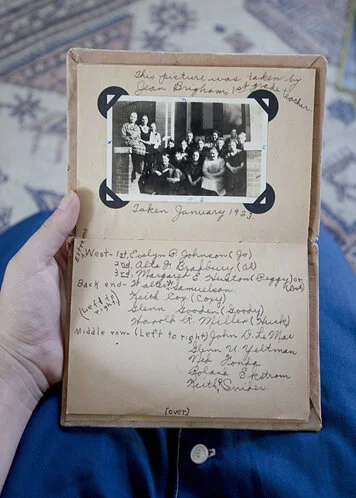 This picture was taken by
Jean Brigham, 1st grade teacher.
Taken January 1923
Extreme
West - 1st, Evelyn P. Johnson (Jo)
2nd, Alta H. Bradbury (Al)
3rd, Margaret E. Huston (Peggy) or
Back end - Walter Samuelson.
(Left to right)
Keith Coy (Coxy)
Glenn Gooden (Goody)
Harold R. Miller (Huck)
Middle row (Left to right) John D. Le Mar
Glenn U. Yeltman
Ned Honda
Roland E. Ekstrom
Keith Snider
(over)